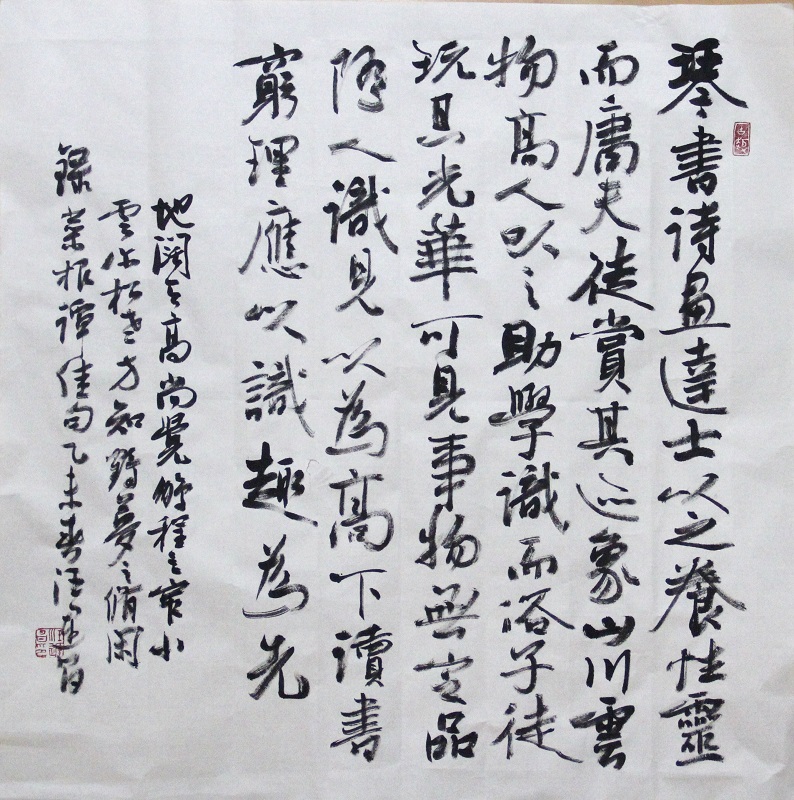 琴書诗畫達士以之養性靈
而庸夫徒賞其迹象山川雲
物高人以之助學識而俗子徒
玩其光華可見事物無定品
随人識見以為高下讀書
窮理應以識趣為先
地闊天高尚覺鵬程之窄小
雲深松老方知鶴夢之悄閑
錄菜根譚佳句乙未春汪